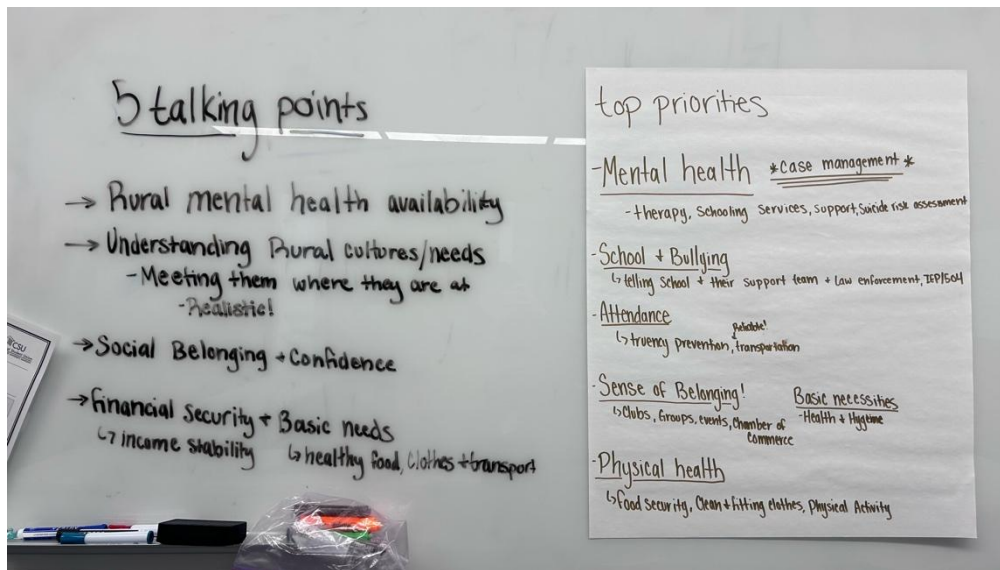 5 talking points
→ Rural mental health availability
→ Understanding Rural cultures/needs
- Meeting them where they are at
- Realistic!
→ Social Belonging + Confidence
→ Financial security + Basic needs
↳ income stability
↳ healthy food, clothes + transport
top priorities
- Mental health *case management*
- therapy, Schooling Services, Support, Suicide risk assesment
- School + Bullying
↳ telling School + their support team + Law enforcement, IEP/504
- Attendance
Reliable!
↳ truency prevention, transportation
- Sense of Belonging!
↳ Clubs, Groups, events, Chamber of
Commerce
Basic necessities
- Health + Hygiene
- Physical health
↳ Food security, Clean + fitting clothes, Physical Activity
CSU